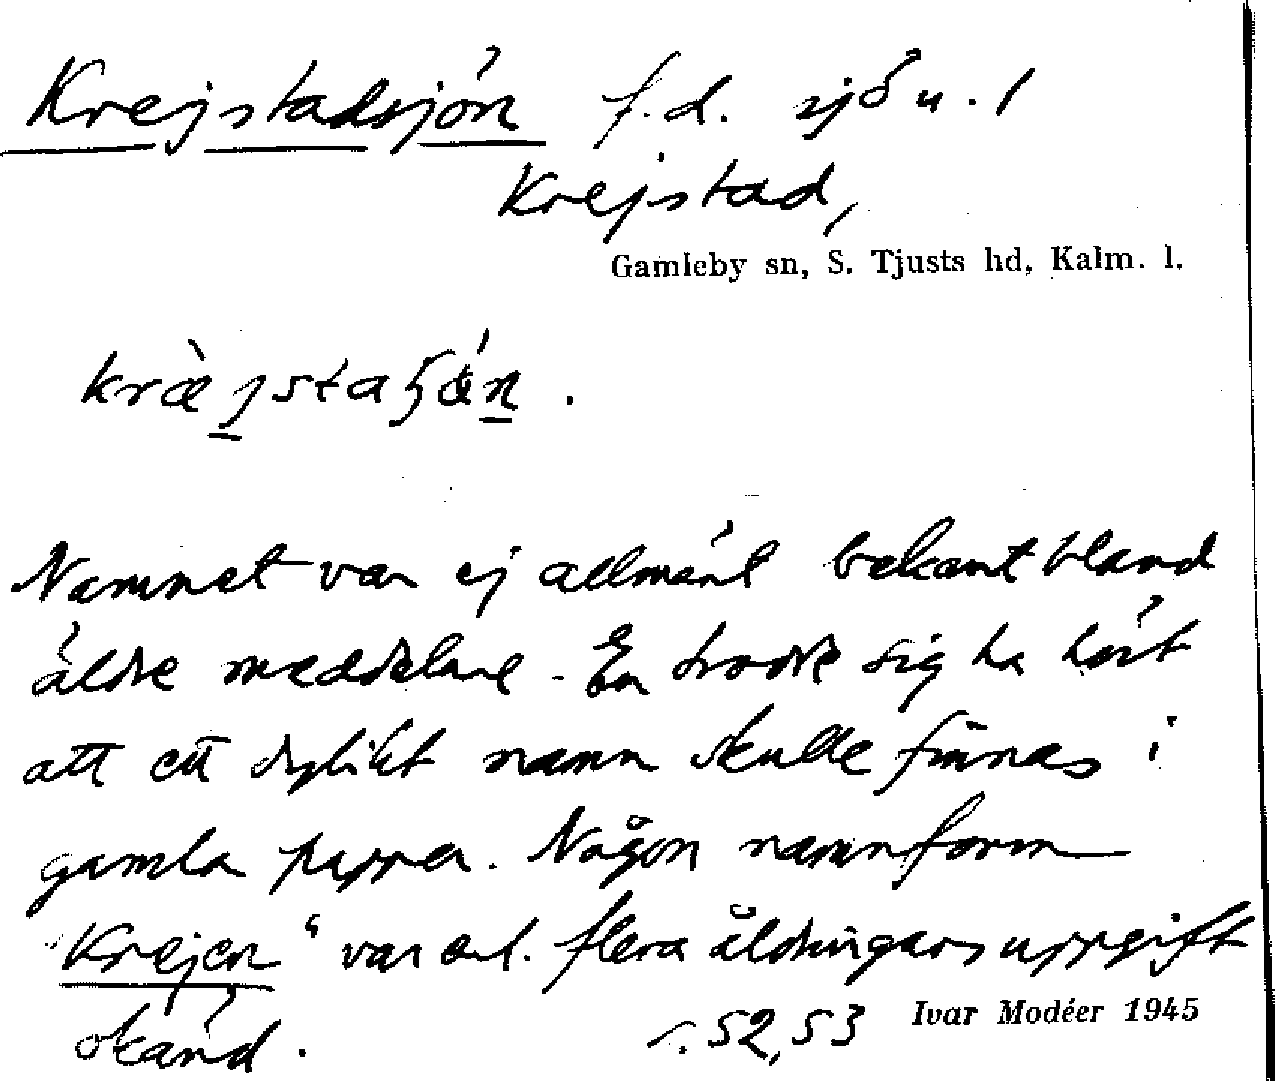 Krejstadsjön f.d. sjö u. l
Krejstad,
Gamleby sn, S. Tjusts hd, Kalm. l.
Namnet var ej allmänt bekant bland
äldre meddelare. En trodde sig ha hört
att ett dylikt namn skulle finnas i
gamla papper. Någon namnform
"Krejen" var enl. flera åldringars uppgift
okänd.
s. 52, 53 Ivar Modéer 1945